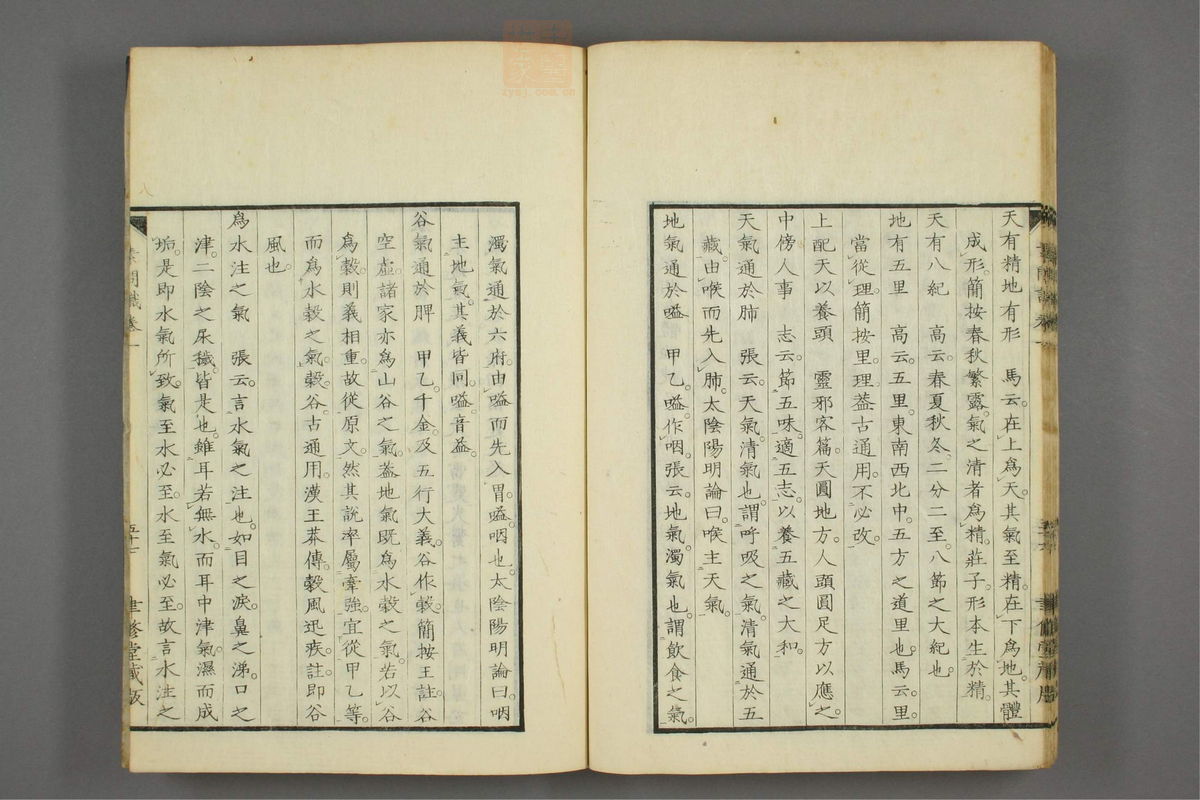 天有精地有形　馬云。在上爲天。其氣至精。在下爲地。其體
成形。簡按春秋繁露。氣之清者爲精。莊子。形本生於精。
天有八紀　高云。春夏秋冬。二分二至。八節之大紀也。
地有五里　高云。五里。東南西北中。五方之道里也。馬云。里。
當從理。簡按里。理。葢古通用。不必改。
上配天以養頭　靈邪客篇。天圓地方。人頭圓足方以應之
中傍人事　志云。節五味。適五志。以養五藏之大和。
天氣通於肺　張云。天氣。清氣也。謂呼吸之氣。清氣通於五
藏。由喉而先入肺。太陰陽明論曰。喉主天氣。
地氣通於嗌　甲乙。嗌。作咽。張云。地氣。濁氣也。謂飲食之氣。
濁氣通於六府。由嗌而先入胃。嗌。咽也。太陰陽明論曰。咽
主地氣。其義皆同。嗌音益。
谷氣通於脾　甲乙。千金。及五行大義。谷作穀。簡按王註。谷
空虛。諸家亦爲山谷之氣。葢地氣既爲水穀之氣。若以谷
爲穀。則義相重。故從原文。然其說率屬牽強。宜從甲乙等。
而爲水穀之氣。穀。谷。古通用。漢王莽傳。穀風迅疾。註。即谷
風也。
爲水注之氣　張云。言水氣之注也。如目之淚。鼻之涕。口之
津。二陰之尿穢。皆是也。雖耳若無水。而耳中津氣。濕而成
垢。是即水氣所致。氣至水必至。水至氣必至。故言水注之
問識卷一
五十七
聿修堂藏版
zysj.com.cn